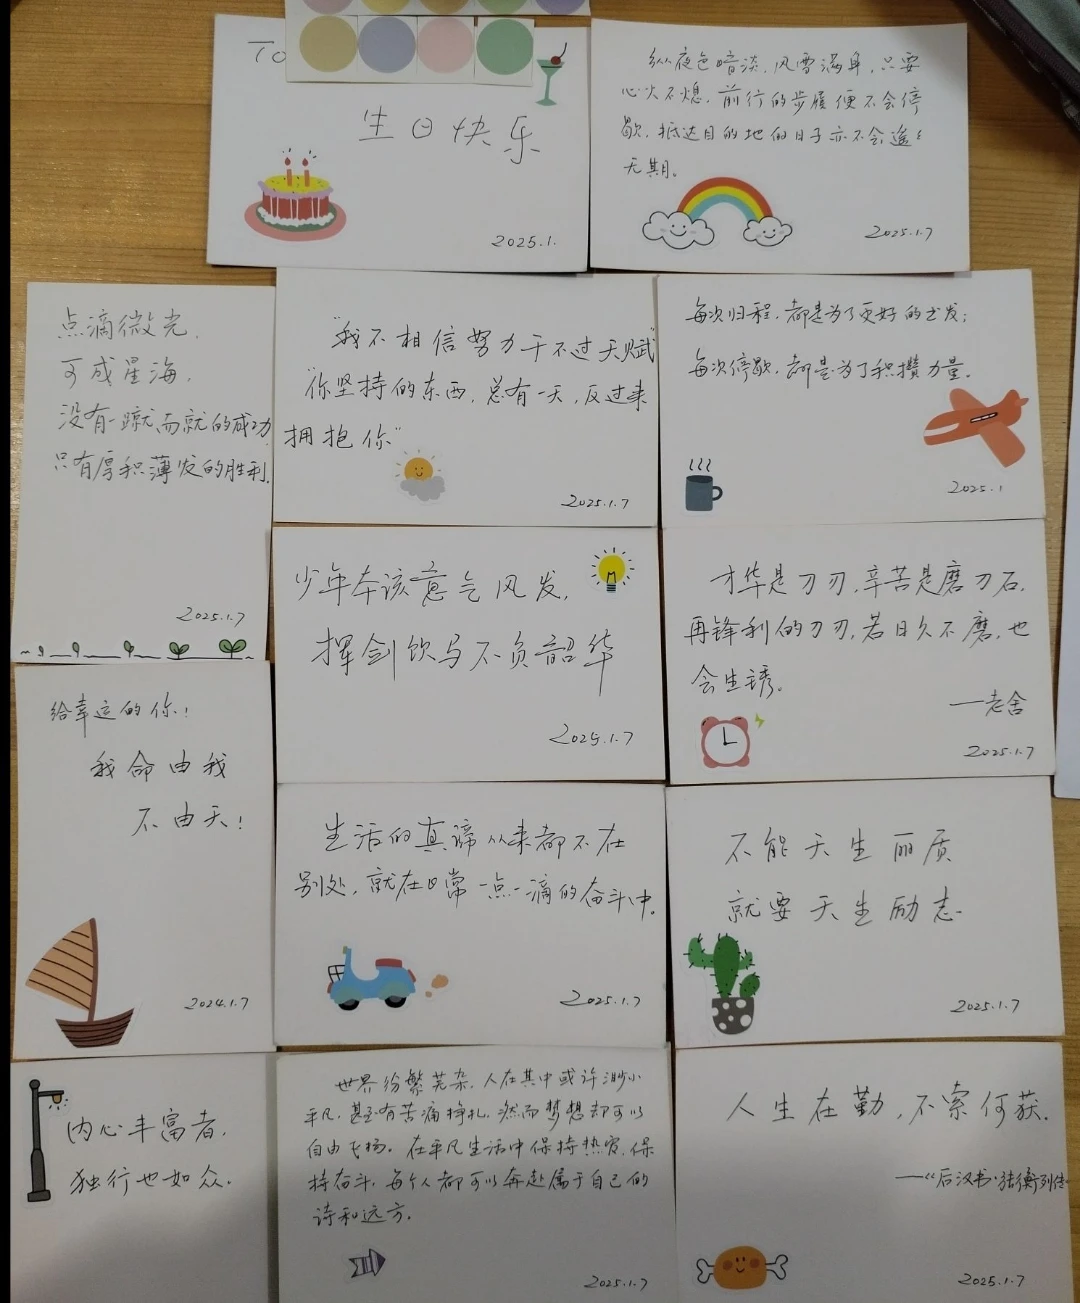 To
生日快乐
2025.1.
纵夜色暗淡,风雪满身,只要
心火不熄,前行的步履便不会停
歇,抵达目的地的日子亦不会遥遥
无期。
2025.1.7
点滴微光,
可成星海,
没有一蹴而就的成功
只有厚积薄发的胜利.
2025.1.7
"我不相信努力干不过天赋"
"你坚持的东西,总有一天,反过来
拥抱你"
2025.1.7
每次归程,都是为了更好的出发;
每次停歇,都是为了积攒力量。
2025.1
少年本该意气风发,
挥剑饮马不负韶华
2025.1.7
才华是刀刃,辛苦是磨刀石,
再锋利的刀刃,若日久不磨,也
会生锈。
—老舍
2025.1.7
给幸运的你!
我命由我
不由天!
2024.1.7
生活的真谛从来都不在
别处,就在日常一点一滴的奋斗中.
2025.1.7
不能天生丽质
就要天生励志
2025.1.7
内心丰富者,
独行也如众.
世界纷繁芜杂,人在其中或许渺小
平凡,甚至有苦痛挣扎,然而梦想却可以
自由飞扬。在平凡生活中保持热爱,保
持奋斗,每个人都可以奔赴属于自己的
诗和远方.
2025.1.7
人生在勤,不索何获.
—《后汉书·张衡列传
2025.1.7